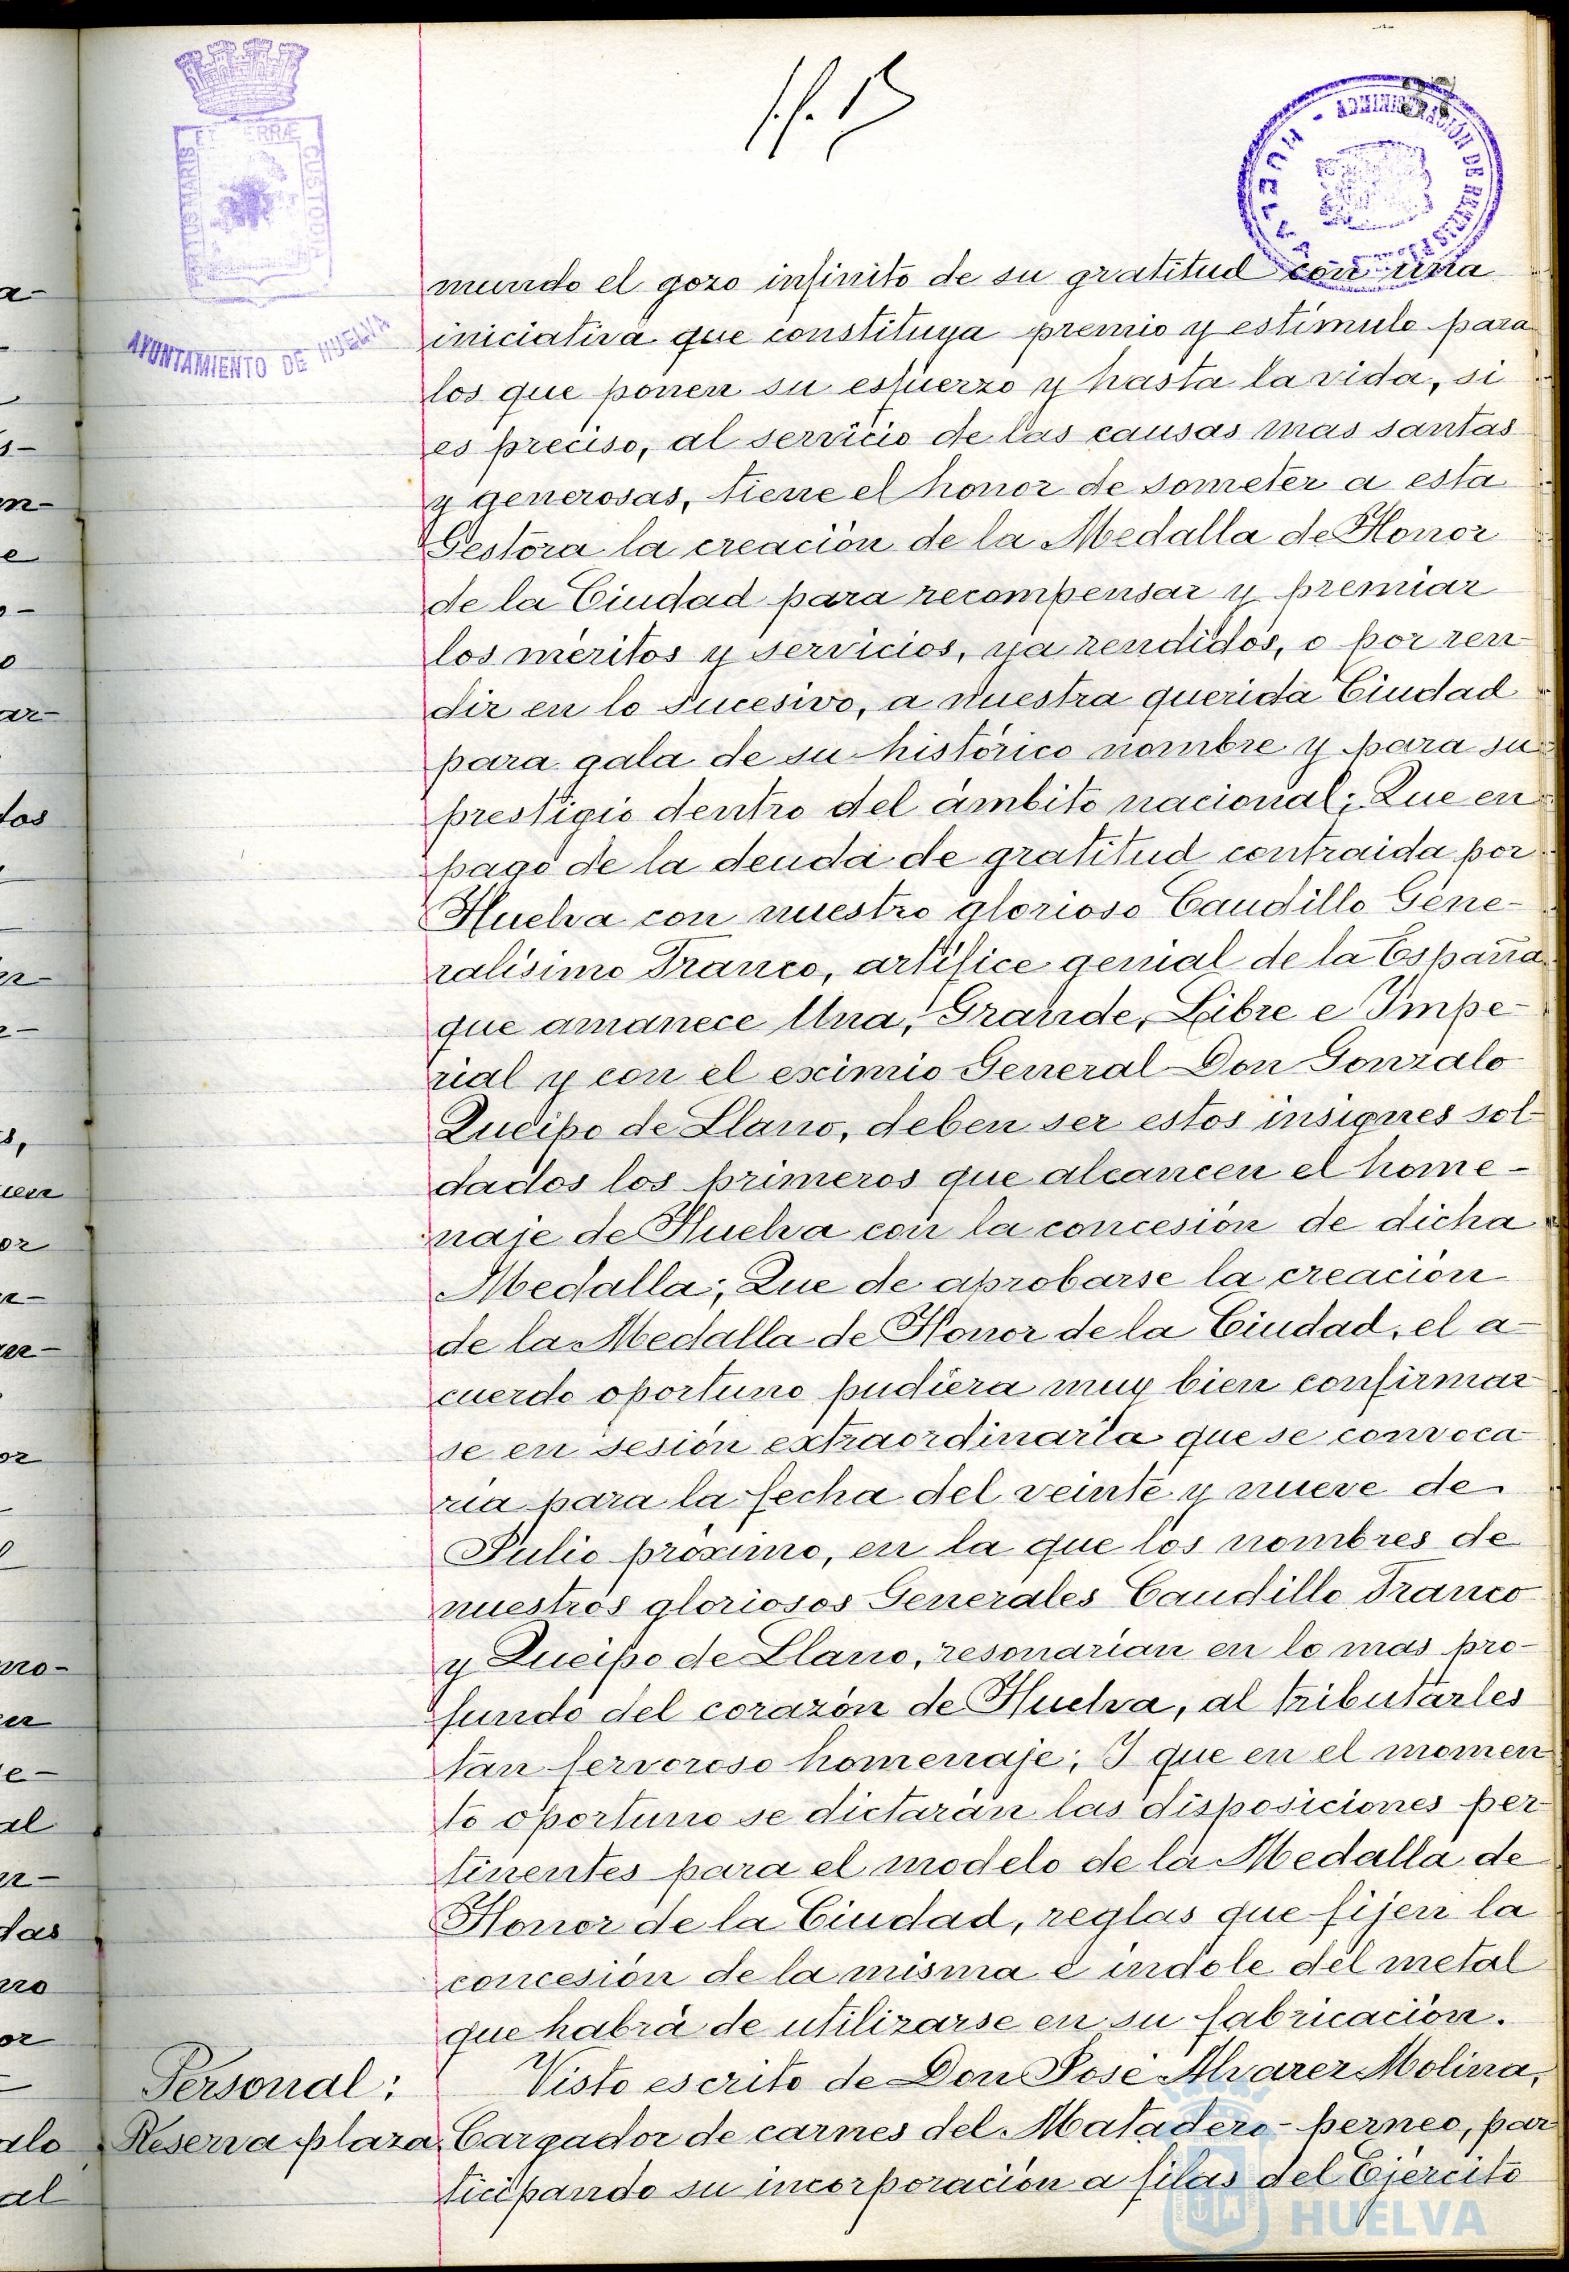 PORTUS MARIS ET TERRÆ CUSTODIA
AYUNTAMIENTO DE HUELVA
37
HUELVA
mundo el gozo infinito de su gratitud con una
iniciativa que constituya premio y estímulo para
los que ponen su esfuerzo y hasta la vida, si
es preciso, al servicio de las causas mas santas
y generosas, tiene el honor de someter a esta
Gestora la creación de la Medalla de Honor
de la Ciudad para recompensar y premiar
los méritos y servicios, ya rendidos, o por ren-
dir en lo sucesivo, a nuestra querida Ciudad
para gala de su histórico nombre y para su
prestigio dentro del ámbito nacional; Que en
pago de la deuda de gratitud contraida por
Huelva con nuestro glorioso Caudillo Gene-
ralísimo Franco, artífice genial de la España
que amanece Una, Grande, Libre e Impe-
rial y con el eximio General Don Gonzalo
Queipo de Llano, deben ser estos insignes sol-
dados los primeros que alcancen el home-
naje de Huelva con la concesión de dicha
Medalla; Que de aprobarse la creación
de la Medalla de Honor de la Ciudad, el a-
cuerdo oportuno pudiera muy bien confirmar
se en sesión extraordinaria que se convoca
ria para la fecha del veinte y nueve de
Julio próximo, en la que los nombres de
nuestros gloriosos Generales Caudillo Franco
y Queipo de Llano, resonarían en lo mas pro-
fundo del corazón de Huelva, al tributarles
tan fervoroso homenaje; Y que en el momen
to oportuno se dictarán las disposiciones per-
tinentes para el modelo de la Medalla de
Honor de la Ciudad, reglas que fijen la
concesión de la misma e índole del metal
que habrá de utilizarse en su fabricación.
Personal: Visto escrito de Don José Alvarez Molina,
Reserva plaza. Cargador de carnes del Matadero-perneo, par
ticipando su incorporación a filas del Ejército
HUELVA